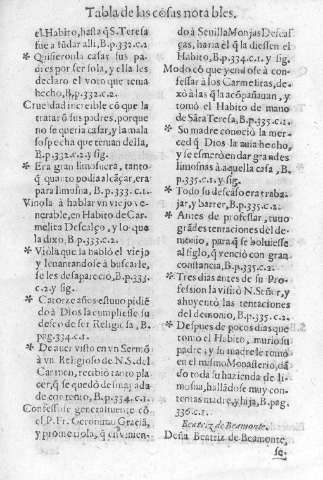 Tabla de las cosas notables.
el Habito, hasta q̃ S. Teresa
fue a fũdar alli, B.p.332.c.2
* Quisieronla casar sus pa-
dres por ser sola, y ella les
declarò el voto que tenia
hecho, B.p.332.c.2.
Crueldad increible cõ que la
trataron sus padres, porque
no se queria casar, y la mala
sospecha que tenian della,
B.p.332.c.2.y sig.
* Era gran limosnera, tanto
q̃ quanto podia alcãçar, era
para limosna, B.p.333.c.1.
Vinola à hablar vn viejo ve-
nerable, en Habito de Car-
melita Descalço, y lo que
la dixo, B.p.333.c.2.
* Viòla que la hablò el viejo
y leuantandose à buscarle,
se les desapareciò, B.p.333.
c.2.y sig.
* Catorze años estuuo pidiẽ-
do à Dios la cumpliesse su
deseo de ser Religiosa, B.
pag.334.c.1.
* De auer visto en vn Sermõ
à vn Religioso de N.S. del
Carmen, recibiò tanto pla
cer, q̃ se quedò desmayada
de contento, B.p.334.c.1.
Confessòse generalmente cõ
el P. Fr. Geronimo Graciã,
y prometiola, q̃ en vinien-
do à Seuilla Monjas Descal-
ças, haria el q̃ la diessen el
Habito, B.p.334.c.1.y sig.
Modo cõ que yendose à con-
fessar à los Carmelitas, de-
xò à las q̃ la acõpañauan, y
tomò el Habito de mano
de Sãta Teresa, B.p.335.c.1.
* Su madre conociò la mer-
ced q̃ Dios la auia hecho,
y se esmerò en dar grandes
limosnas à aquella casa, B.
p.335.c.1.y sig.
* Todo su deseo era traba-
jar, y barrer, B.p.335.c.2.
* Antes de professar, tuuo
grãdes tentaciones del de-
monio, para q̃ se boluiesse
al siglo, q̃ venciò con gran
constancia, B.p.335.c.2.
* Tres dias antes de su Pro-
fession la visitò N. Señor, y
ahuyentò las tentaciones
del demonio, B.p.335.c.2.
* Despues de pocos dias que
tomò el Habito, muriò su
padre; y su madre le tomò
en el mismo Monasterio, dã
do toda su hazienda de li-
mosna, hallãdose muy con-
tentas madre, y hija, B.pag.
336.c.1.
Beatriz de Beamonte.
Doña Beatriz de Beamonte,
se